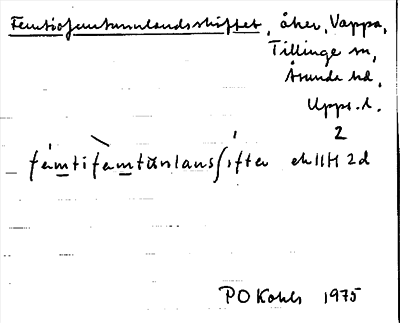 Femtiofemtunnlandsskiftet, åker, Vappa,
Tillinge sn,
Åsunda hd,
Upps. l.
2
fémtifèmtūnlansʃífter
P O Kohls 1975